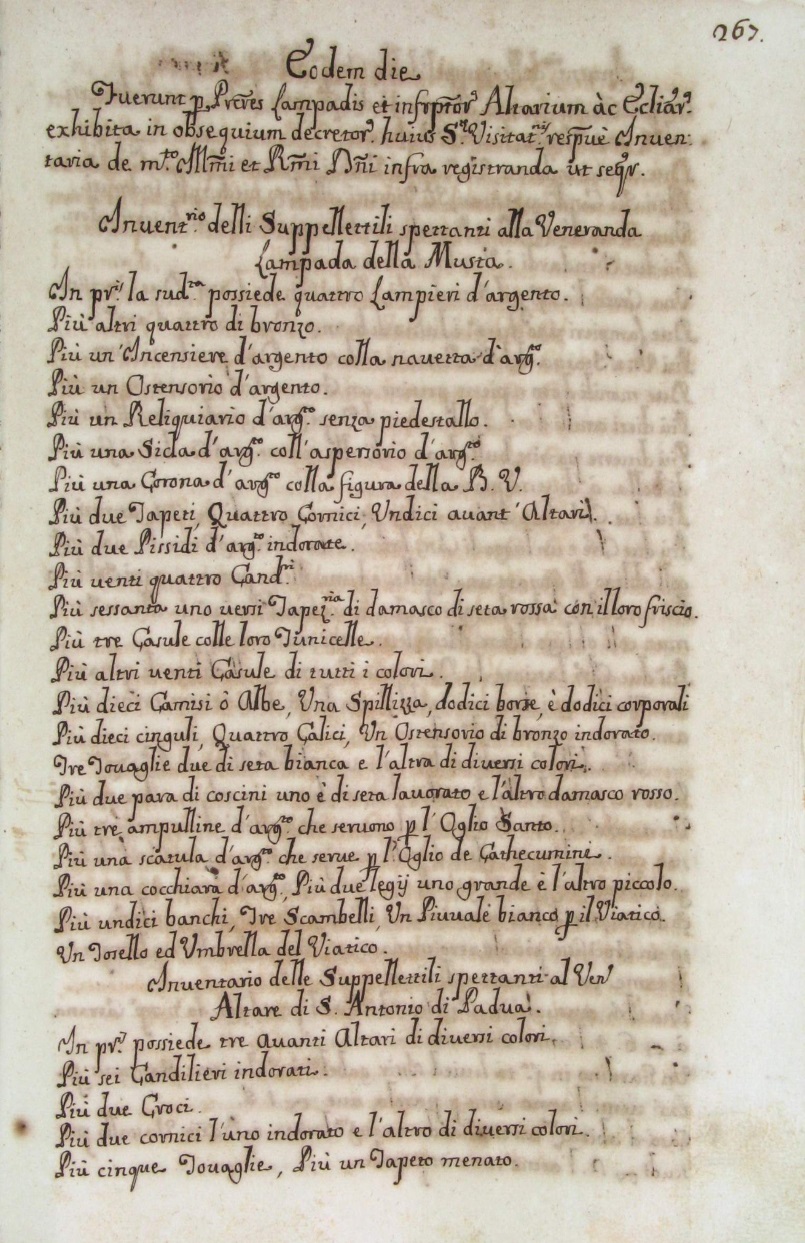 267.
Eodem die
Fuerunt p. Prēres Lampadis et infrptōr. Altarium àc Ecliār.
exhibita in obsequium decretor. huius S.æ Visitat.nis respuè Inven:
taria de m.to Illm̄i et Rm̄i Dn̄i infra registranda ut seqr.
Inuent.rio delli Suppellettili spettanti alla Veneranda
Lampada della Musta.
In pr.s la sud.tta possiede quattro Lampieri d'argento.
Più altri quattro di bronzo.
Più un Incensiere d'argento colla nauetta d'arg.to
Più un Ostensorio d'argento.
Più un Reliquiario d'arg.to senza piedestallo.
Più una Sicla d'arg.to coll'aspersorio d'arg.to
Più una Corona d'arg.to colla figura della B. V.
Più due Tapeti, Quattro Cornici, Undici auant' Altari.
Più due Pissidi d'arg.to indorate.
Più uenti quattro Cand.ri
Più sessanta uno uersi Tapez.ria di damasco di seta rossa con il loro friscio.
Più tre Casule colle loro Tunicelle.
Più altri uenti Casule di tutti i colori.
Più dieci Camisi ò Albe, Una Spillizza, dodici borse, è dodici corporali
Più dieci cinguli, Quattro Calici, Un Ostensorio di bronzo indorato.
Tre Touaglie due di seta bianca e l'altra di diuersi colori.
Più due para di coscini uno è di seta lauorato e l'altro damasco rosso.
Più trè ampulline d'arg.to che seruono p l'Oglio Santo.
Più una scatula d'arg.to che serue p l'Oglio de Cathecumini.
Più una cocchiara d'arg.to, Più due legij uno grande è l'altro piccolo.
Più undici banchi, Tre Scambelli, Un Piuuale bianco p il Viatico.
Un Tosello ed Umbrella del Viatico.
Inuentario delle Suppellettili spettanti al Ven.
Altare di S. Antonio di Padua.
In pr.s possiede tre auanti Altari di diuersi colori.
Più sei Candilieri indorati.
Più due Croci.
Più due cornici l'uno indorato e l'altro di diuersi colori.
Più cinque Touaglie, Più un Tapeto menato.